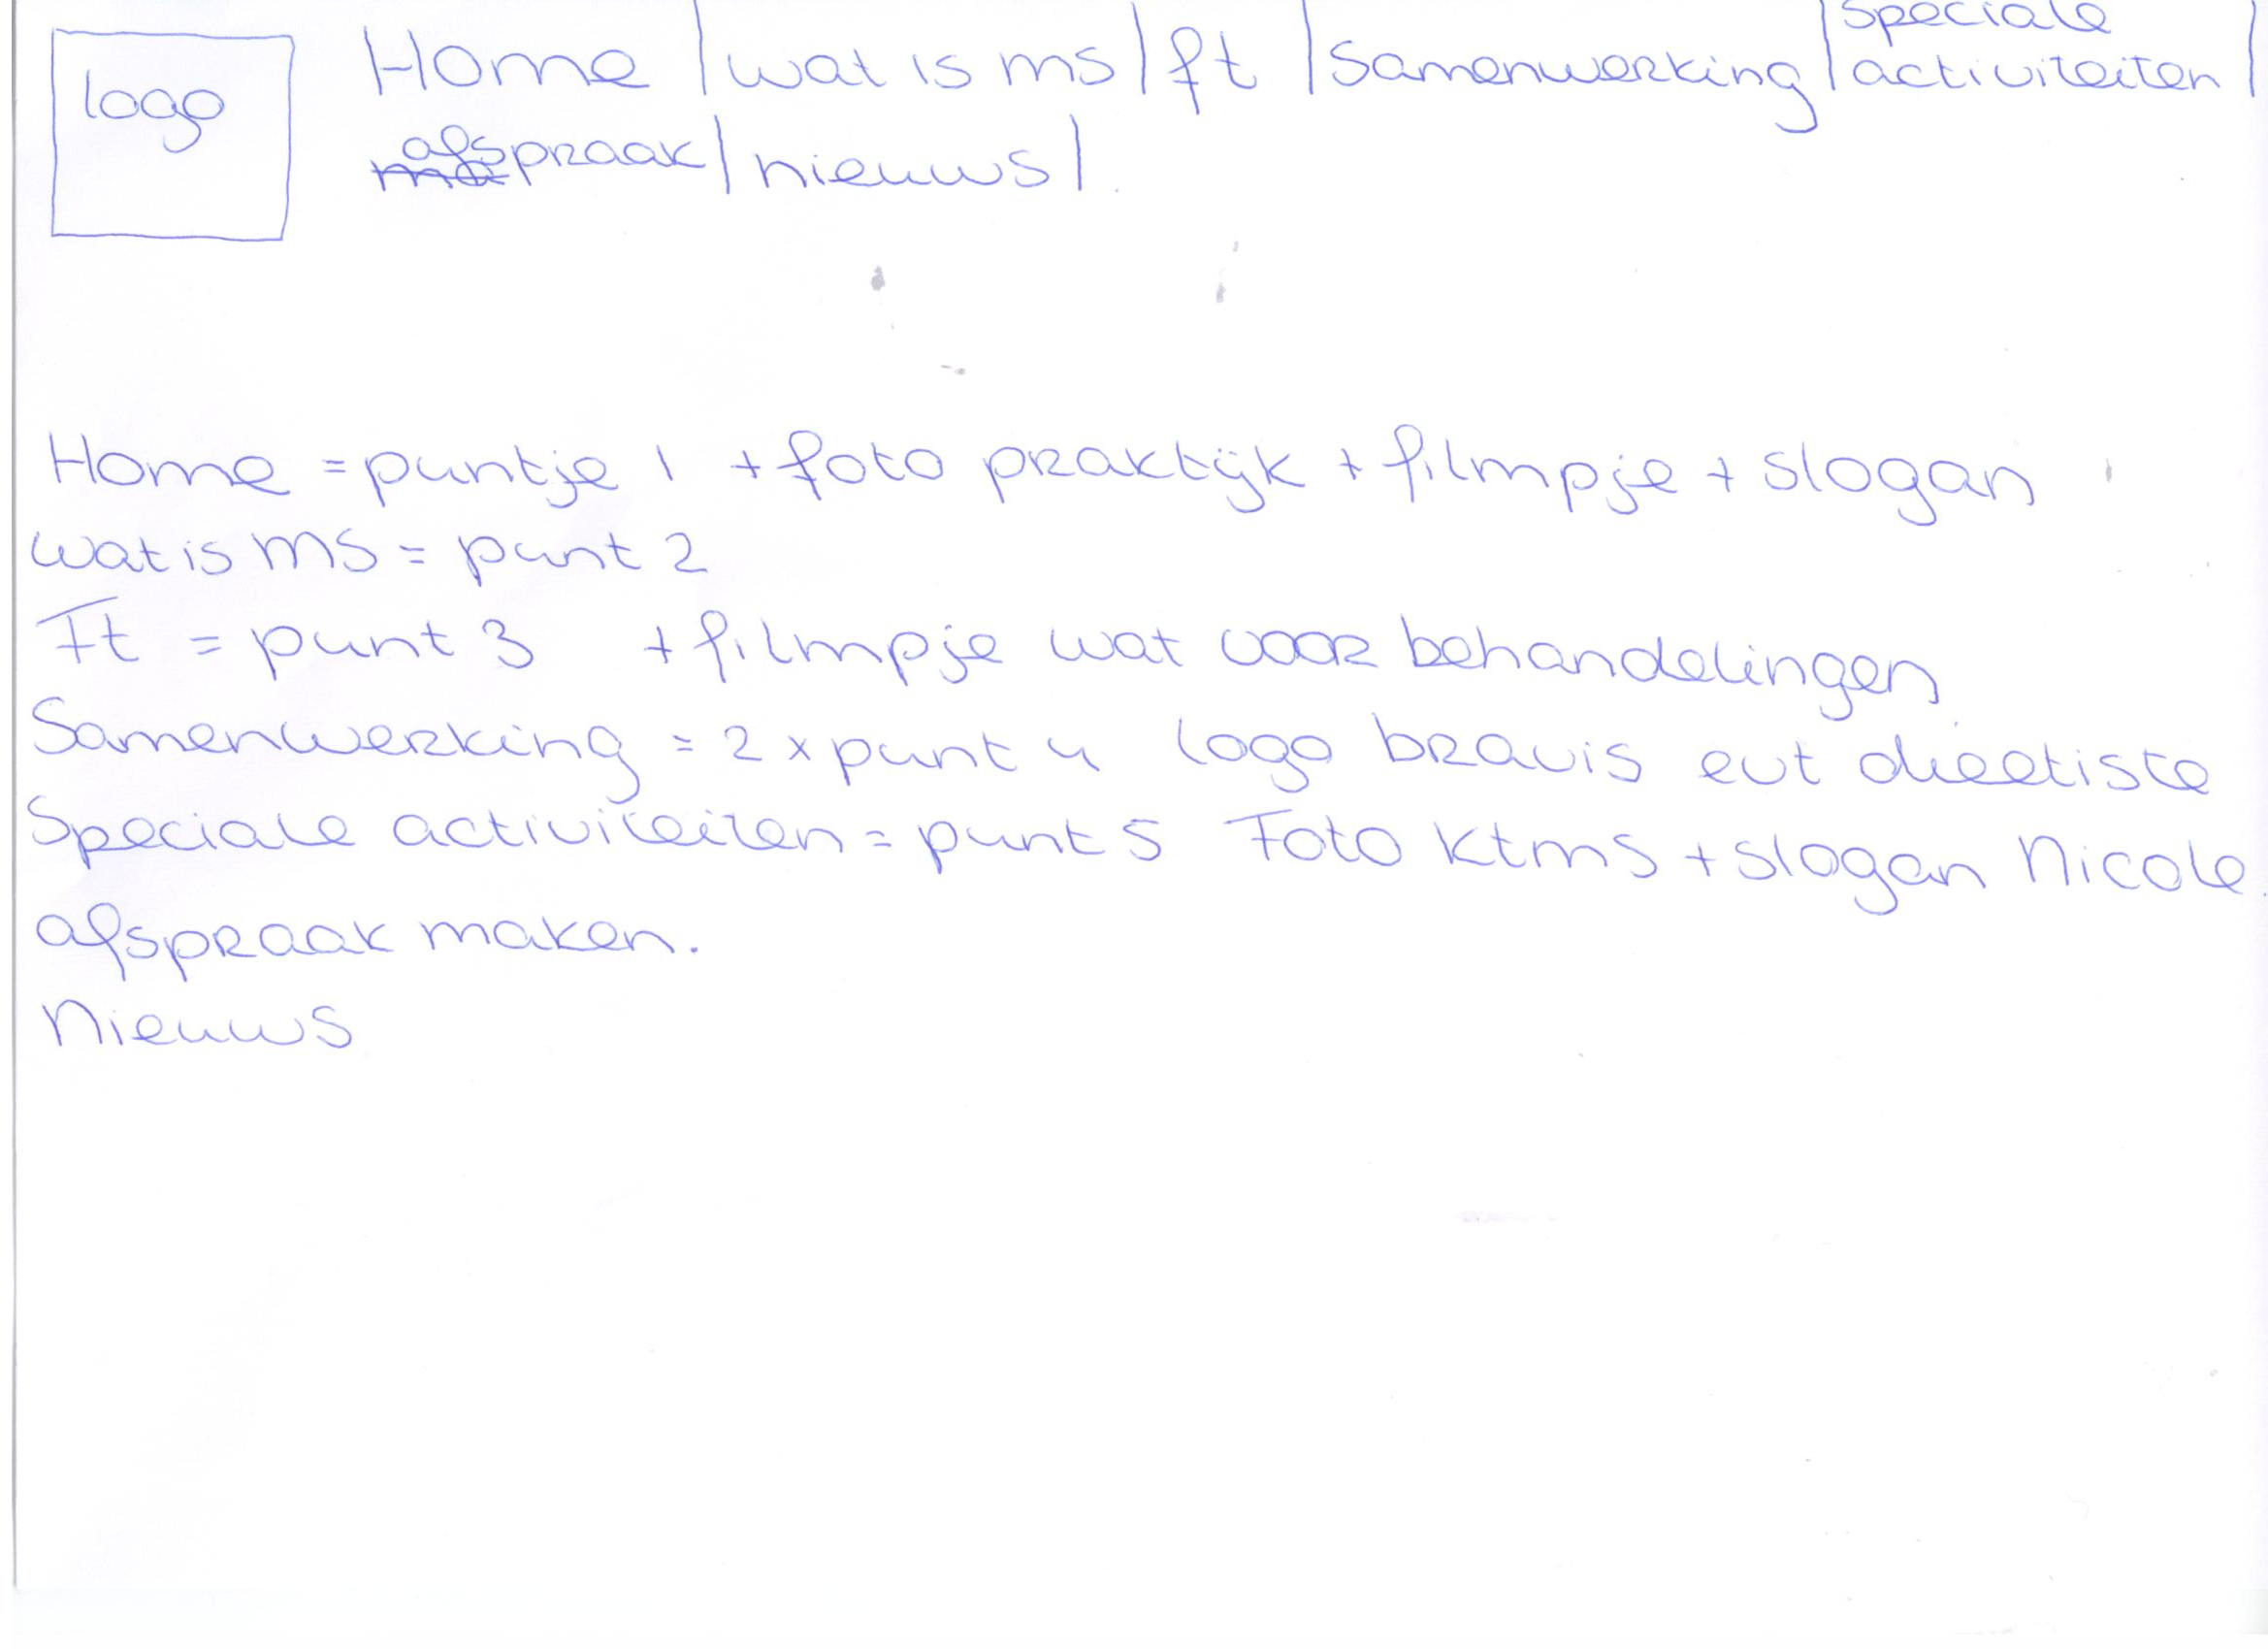 logo
Home | wat is ms | ft | Samenwerking | speciale activiteiten |
afspraak | nieuws |
Home = puntje 1 + foto praktijk + filmpje + slogan
wat is MS = punt 2
Ft = punt 3 + filmpje wat voor behandelingen
Samenwerking = 2 x punt 4 logo bravis evt dieetiste
Speciale activiteiten = punt 5 Foto ktms + slogan Nicole.
afspraak maken.
Nieuws